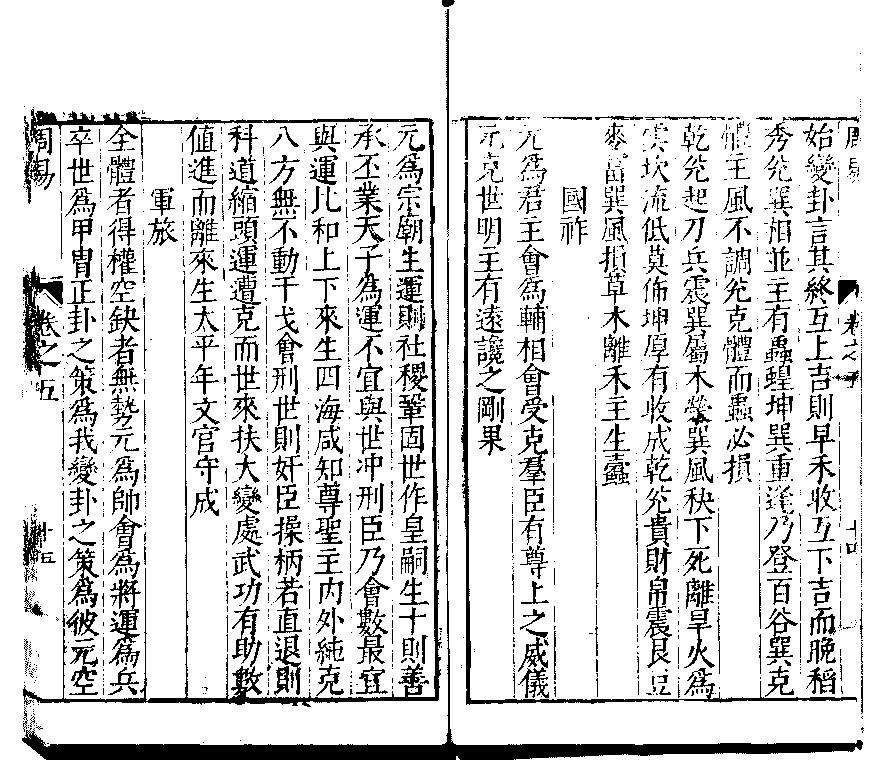 周易
卷之五
十四
始變卦言其終互上吉則早禾收互下吉而晚稻
秀兊巽相並主有蟲蝗坤巽重逢乃登百谷巽克
體主風不調兊克體而蟲必損
乾兊起刀兵震巽屬木榮巽風秧下死離旱火為
災坎流低莫佈坤厚有收成乾兊貴財帛震艮豆
麥富巽風損草木離禾主生蠧
國祚
元為君主會為輔相會受克羣臣有尊上之威儀
元克世明主有遠讒之剛果
元為宗廟生運則社稷鞏固世作皇嗣生十則善
承丕業天子為運不宜與世冲刑臣乃會數最宜
與運比和上下來生四海咸知尊聖主内外純克
八方無不動干戈會刑世則奸臣操柄若直退則
科道縮頭運遭克而世來扶大變處武功有助數
值進而離來生太平年文官守成
軍旅
全體者得權空缺者無勢元為帥會為將運為兵
卒世為甲冑正卦之策為我變卦之策為彼元空
周易
卷之五
十五